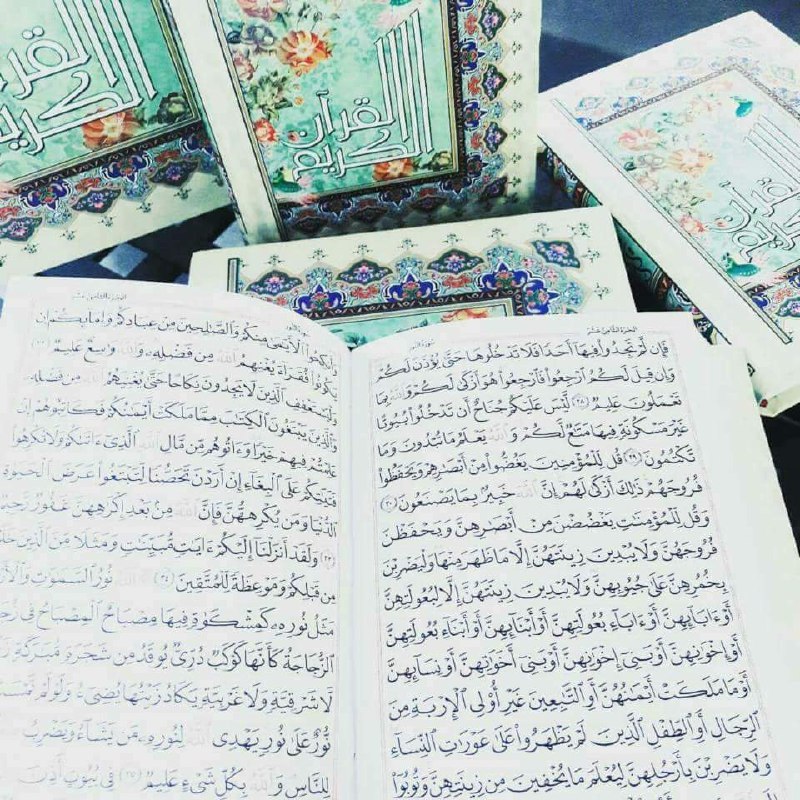 القرآن
الكريم
القرآن
الكريم
الجزء الثامن عشر
سورة النور
فَإِن لَّمْ تَجِدُواْ فِيهَا أَحَدًا فَلَا تَدْخُلُوهَا حَتَّىٰ يُؤْذَنَ لَكُمْ
وَإِن قِيلَ لَكُمُ ارْجِعُواْ فَارْجِعُواْ هُوَ أَزْكَىٰ لَكُمْ وَاللَّهُ بِمَا
تَعْمَلُونَ عَلِيمٌ (٢٨) لَّيْسَ عَلَيْكُمْ جُنَاحٌ أَن تَدْخُلُواْ بُيُوتًا
غَيْرَ مَسْكُونَةٍ فِيهَا مَتَاعٌ لَّكُمْ وَاللَّهُ يَعْلَمُ مَا تُبْدُونَ وَمَا
تَكْتُمُونَ (٢٩) قُل لِّلْمُؤْمِنِينَ يَغُضُّواْ مِنْ أَبْصَارِهِمْ وَيَحْفَظُواْ
فُرُوجَهُمْ ذَٰلِكَ أَزْكَىٰ لَهُمْ إِنَّ اللَّهَ خَبِيرٌ بِمَا يَصْنَعُونَ (٣٠)
وَقُل لِّلْمُؤْمِنَاتِ يَغْضُضْنَ مِنْ أَبْصَارِهِنَّ وَيَحْفَظْنَ
فُرُوجَهُنَّ وَلَا يُبْدِينَ زِينَتَهُنَّ إِلَّا مَا ظَهَرَ مِنْهَا وَلْيَضْرِبْنَ
بِخُمُرِهِنَّ عَلَىٰ جُيُوبِهِنَّ وَلَا يُبْدِينَ زِينَتَهُنَّ إِلَّا لِبُعُولَتِهِنَّ
أَوْ ءَابَآئِهِنَّ أَوْ ءَابَآءِ بُعُولَتِهِنَّ أَوْ أَبْنَآئِهِنَّ أَوْ أَبْنَآءِ بُعُولَتِهِنَّ
أَوْ إِخْوَانِهِنَّ أَوْ بَنِىٓ إِخْوَانِهِنَّ أَوْ بَنِىٓ أَخَوَاتِهِنَّ أَوْ نِسَآئِهِنَّ
أَوْ مَا مَلَكَتْ أَيْمَانُهُنَّ أَوِ التَّابِعِينَ غَيْرِ أُوْلِى الْإِرْبَةِ مِنَ
الرِّجَالِ أَوِ الطِّفْلِ الَّذِينَ لَمْ يَظْهَرُواْ عَلَىٰ عَوْرَاتِ النِّسَآءِ
وَلَا يَضْرِبْنَ بِأَرْجُلِهِنَّ لِيُعْلَمَ مَا يُخْفِينَ مِن زِينَتِهِنَّ وَتُوبُوٓاْ
الجزء الثامن عشر
سورة النور
وَأَنكِحُواْ الْأَيَامَىٰ مِنكُمْ وَالصَّالِحِينَ مِنْ عِبَادِكُمْ وَإِمَآئِكُمْ إِن
يَكُونُواْ فُقَرَآءَ يُغْنِهِمُ اللَّهُ مِن فَضْلِهِ وَاللَّهُ وَاسِعٌ عَلِيمٌ (٣٢)
وَلْيَسْتَعْفِفِ الَّذِينَ لَا يَجِدُونَ نِكَاحًا حَتَّىٰ يُغْنِيَهُمُ اللَّهُ مِن فَضْلِهِ
وَالَّذِينَ يَبْتَغُونَ الْكِتَابَ مِمَّا مَلَكَتْ أَيْمَانُكُمْ فَكَاتِبُوهُمْ إِنْ
عَلِمْتُمْ فِيهِمْ خَيْرًا وَءَاتُوهُم مِّن مَّالِ اللَّهِ الَّذِىٓ ءَاتَاكُمْ وَلَا تُكْرِهُواْ
فَتَيَاتِكُمْ عَلَى الْبِغَآءِ إِنْ أَرَدْنَ تَحَصُّنًا لِّتَبْتَغُواْ عَرَضَ الْحَيَوٰةِ
الدُّنْيَا وَمَن يُكْرِههُّنَّ فَإِنَّ اللَّهَ مِنۢ بَعْدِ إِكْرَاهِهِنَّ غَفُورٌ رَّحِيمٌ
(٣٣) وَلَقَدْ أَنزَلْنَآ إِلَيْكُمْ ءَايَاتٍ مُّبَيِّنَاتٍ وَمَثَلًا مِّنَ الَّذِينَ خَلَوْاْ
مِن قَبْلِكُمْ وَمَوْعِظَةً لِّلْمُتَّقِينَ (٣٤) اللَّهُ نُورُ السَّمَاوَاتِ وَالْأَرْضِ
مَثَلُ نُورِهِ كَمِشْكَوٰةٍ فِيهَا مِصْبَاحٌ الْمِصْبَاحُ فِى زُجَاجَةٍ
الزُّجَاجَةُ كَأَنَّهَا كَوْكَبٌ دُرِّىٌّ يُوقَدُ مِن شَجَرَةٍ مُّبَارَكَةٍ
لَّا شَرْقِيَّةٍ وَلَا غَرْبِيَّةٍ يَكَادُ زَيْتُهَا يُضِىٓءُ وَلَوْ لَمْ تَمْسَسْهُ
نُّورٌ عَلَىٰ نُورٍ يَهْدِى اللَّهُ لِنُورِهِ مَن يَشَآءُ وَيَضْرِبُ
لِلنَّاسِ وَاللَّهُ بِكُلِّ شَىْءٍ عَلِيمٌ (٣٥) فِى بُيُوتٍ أَذِنَ